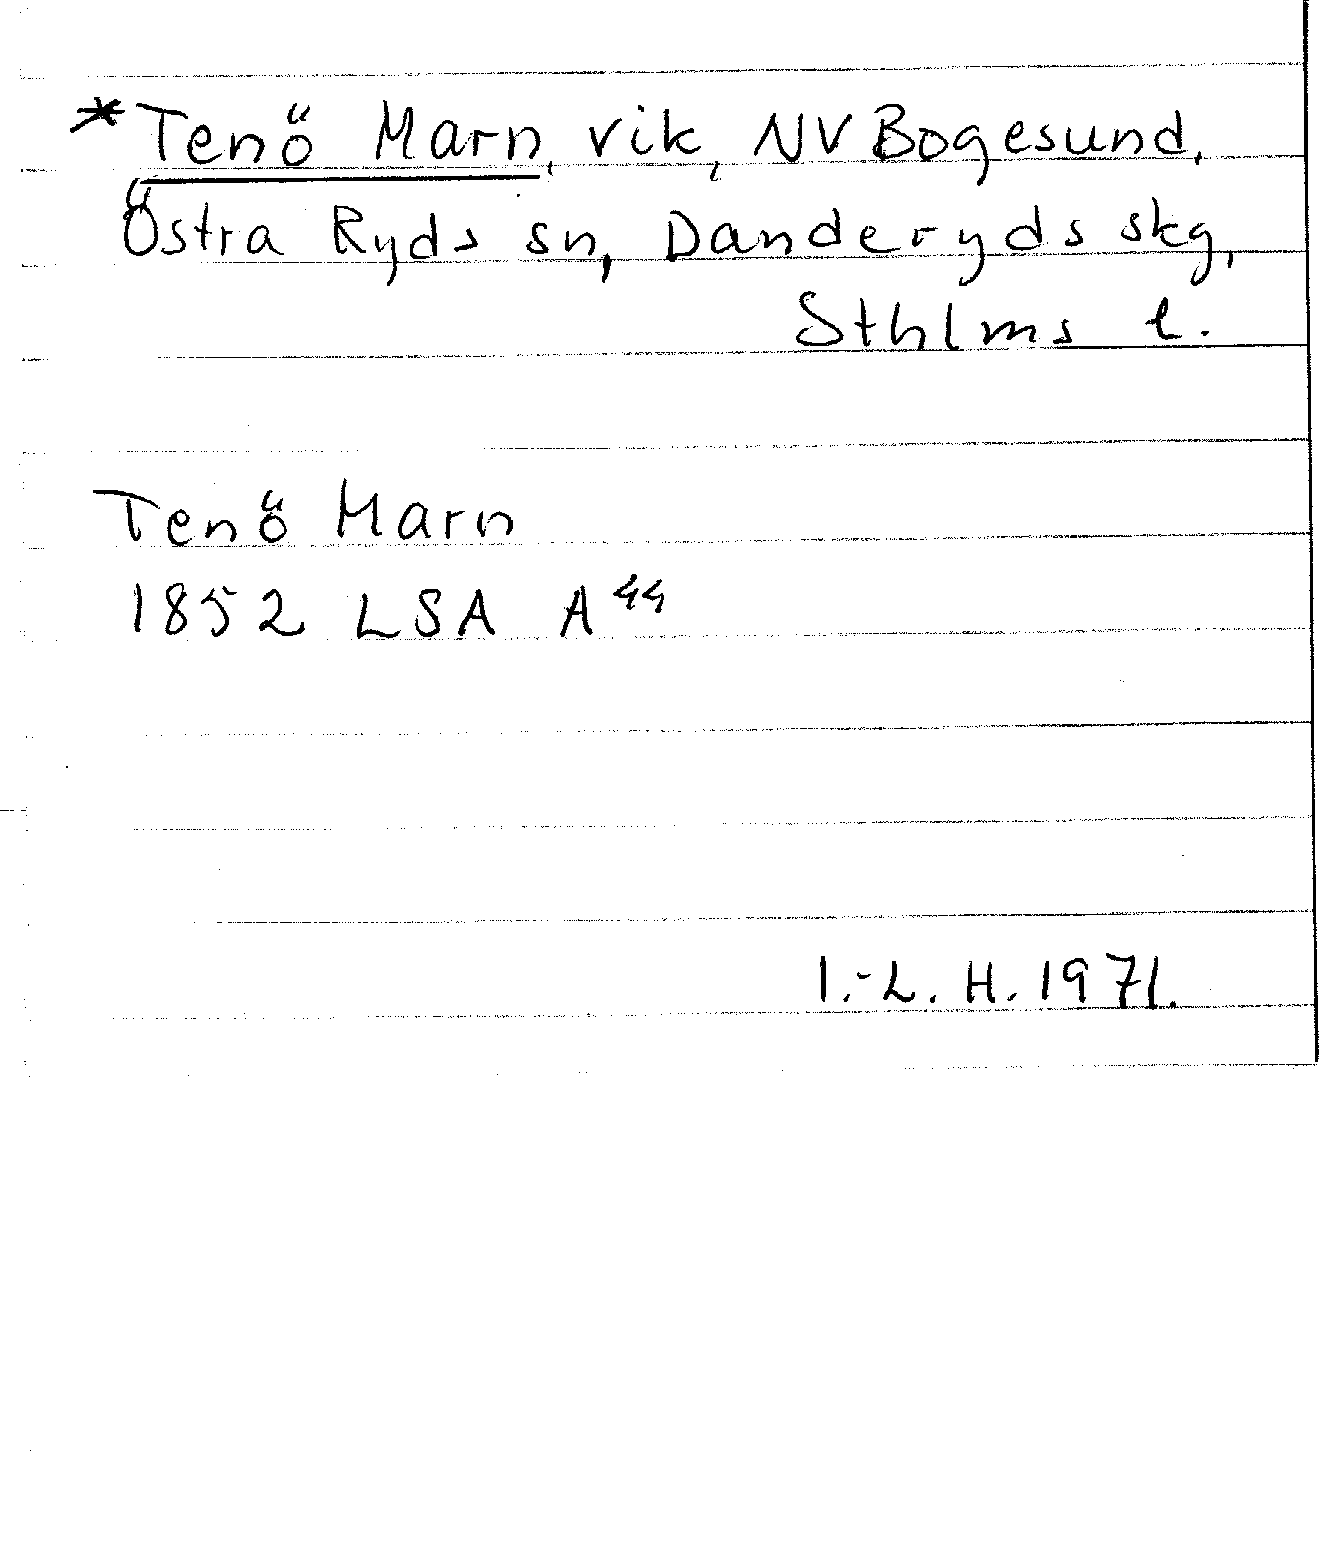 *Tenö Marn, vik, NV Bogesund,
Östra Ryds sn, Danderyds skg,
Sthlms l.
Tenö Marn
1852 LSA A44
I.-L. H. 1971.